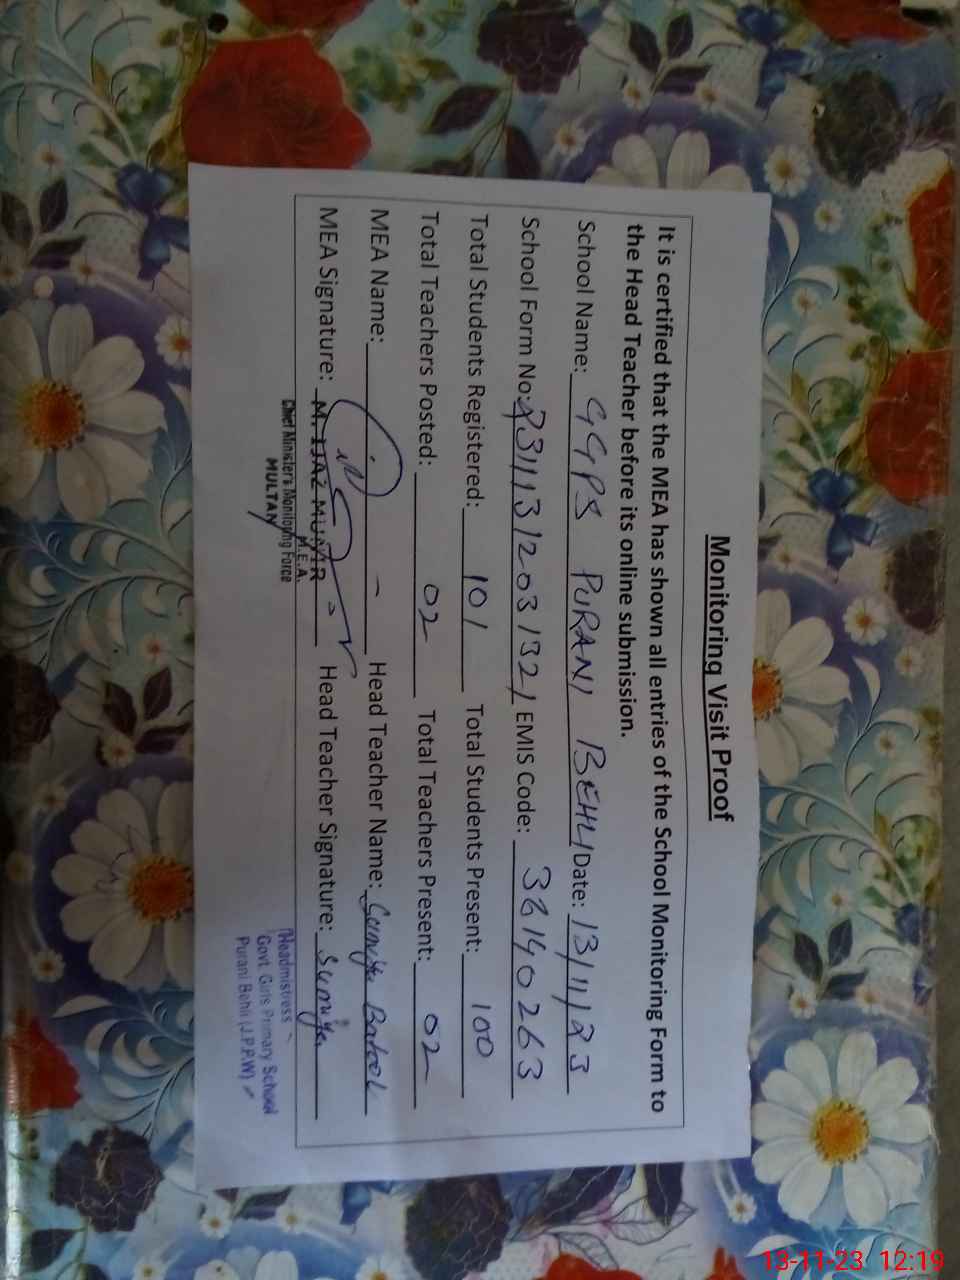 Monitoring Visit Proof
It is certified that the MEA has shown all entries of the School Monitoring Form to
the Head Teacher before its online submission.
School Name: GGPS PURANI BEHLI Date: 13/11/23
School Form No: 23111312031321 EMIS Code: 36140263
Total Students Registered: 101 Total Students Present: 100
Total Teachers Posted: 02 Total Teachers Present: 02
MEA Name: Head Teacher Name: Sumiya Batool
MEA Signature: Head Teacher Signature: Sumiya
M. IJAZ MUNIR
M.E.A.
Chief Minister's Monitoring Force
MULTAN
Headmistress
Govt. Girls Primary School
Purani Behli (J.P.P.W)
13-11-23 12:19